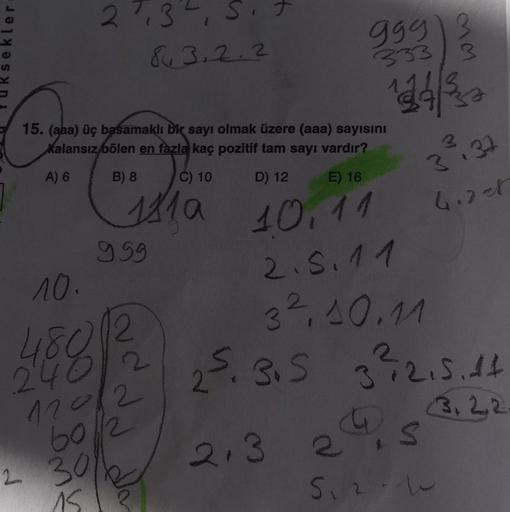 8.3.2.2
999 3
333 3
37
3³.37
15. (aaa) üç basamaklı bir sayı olmak üzere (aaa) sayısını
kalansız bölen en fazla kaç pozitif tam sayı vardır?
A) 6 B) 8 C) 10 D) 12 E) 16
111a
10.11
999
2.5.11
10.
3².10.11
480 2
240 2
120 2
60 2
30 2
15 3
2⁵.3.5
3².2.5.11
3.2.2
2.3
2⁴.5